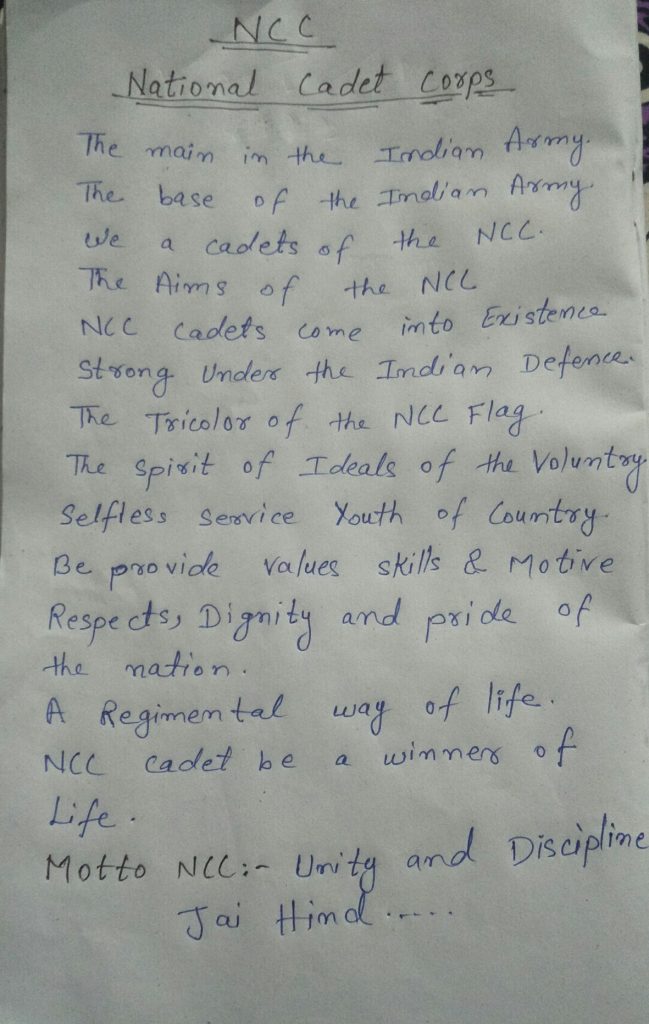 NCC
National Cadet Corps
The main in the Indian Army.
The base of the Indian Army
We a cadets of the NCC.
The Aims of the NCC
NCC Cadets come into Existence
Strong Under the Indian Defence.
The Tricolor of the NCC Flag.
The Spirit of Ideals of the Voluntry
Selfless Service Youth of Country.
Be provide values skills & Motive
Respects, Dignity and pride of
the nation.
A Regimental way of life.
NCC cadet be a winner of
Life.
Motto NCC:- Unity and Discipline
Jai Hind.....